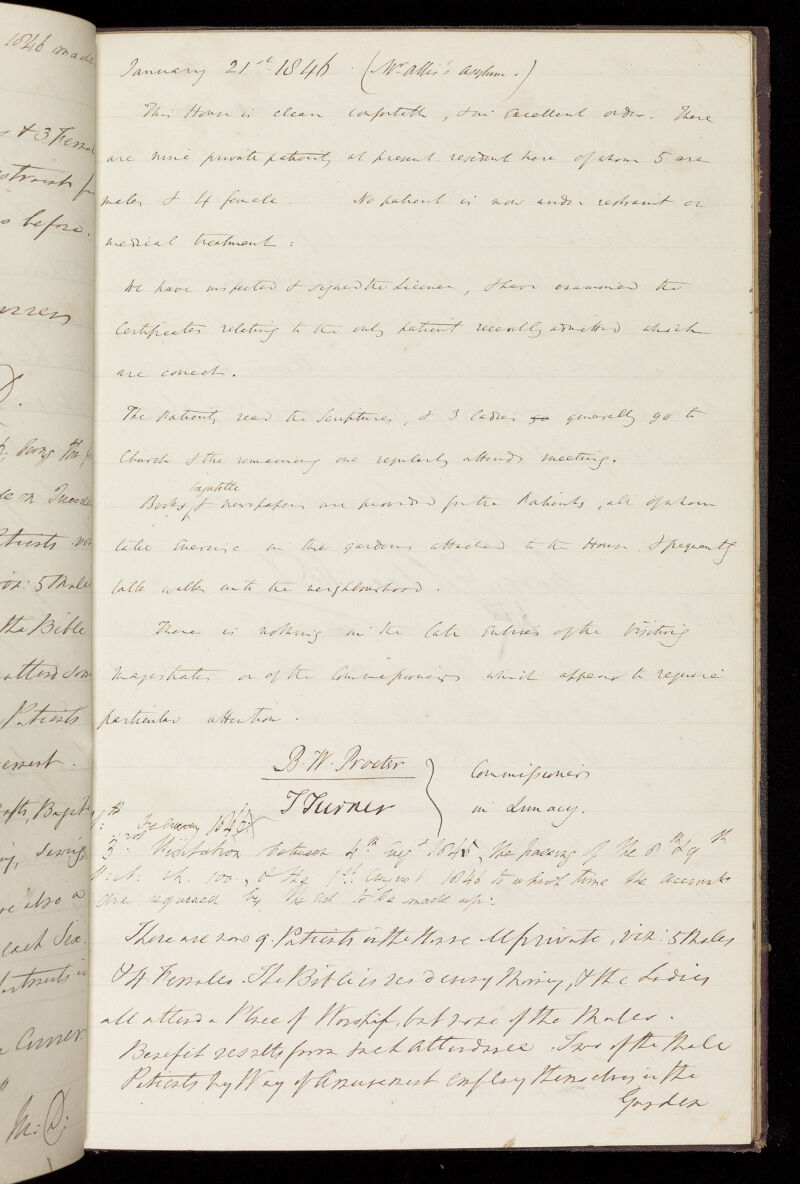 1846 made
s & 3 Fem
straint f
s before.
D.
being the
de on Tuesda
tients no
viz: 5 Male
the Bible
attend som
Patients
ement.
also a
each Sex.
M: D:
January 21st 1846. (Mr Allis's Asylum.)
This House is clean comfortable, & in excellent order. There
are nine private patients at present resident here of whom 5 are
males & 4 female. No patient is now under restraint or
medical treatment:
We have inspected & signed the Licence, & have examined the
Certificates relating to the only patient recently admitted which
are correct.
The Patients read the Scriptures, & 3 Ladies go generally go to
Church & the remaining one regularly attends meeting.
bagatelle
Books & newspapers are provided for the Patients, all of whom
take Exercise in the gardens attached to the House & frequently
take walks into the neighbourhood.
There is nothing in the late Entries of the Visiting
Magistrates or of the Commissioners which appears to require
particular attention.
B. W. Procter
Commissioners
T Turner
in Lunacy.
February
3rd Visitation between 4th Augt 1845, the passing of the 8th & 9th
Vict: ch. 100., & the 1st August 1846 to which time the accounts
are required by the Act to be made up:
There are now 9 Patients in the House All private, viz: 5 Males
& 4 Females. The Bible is read every Morning, & the Ladies
all attend a Place of Worship, but none of the Males.
Benefit results from such Attendance. Two of the Male
Patients by Way of Amusement employ themselves in the
Garden